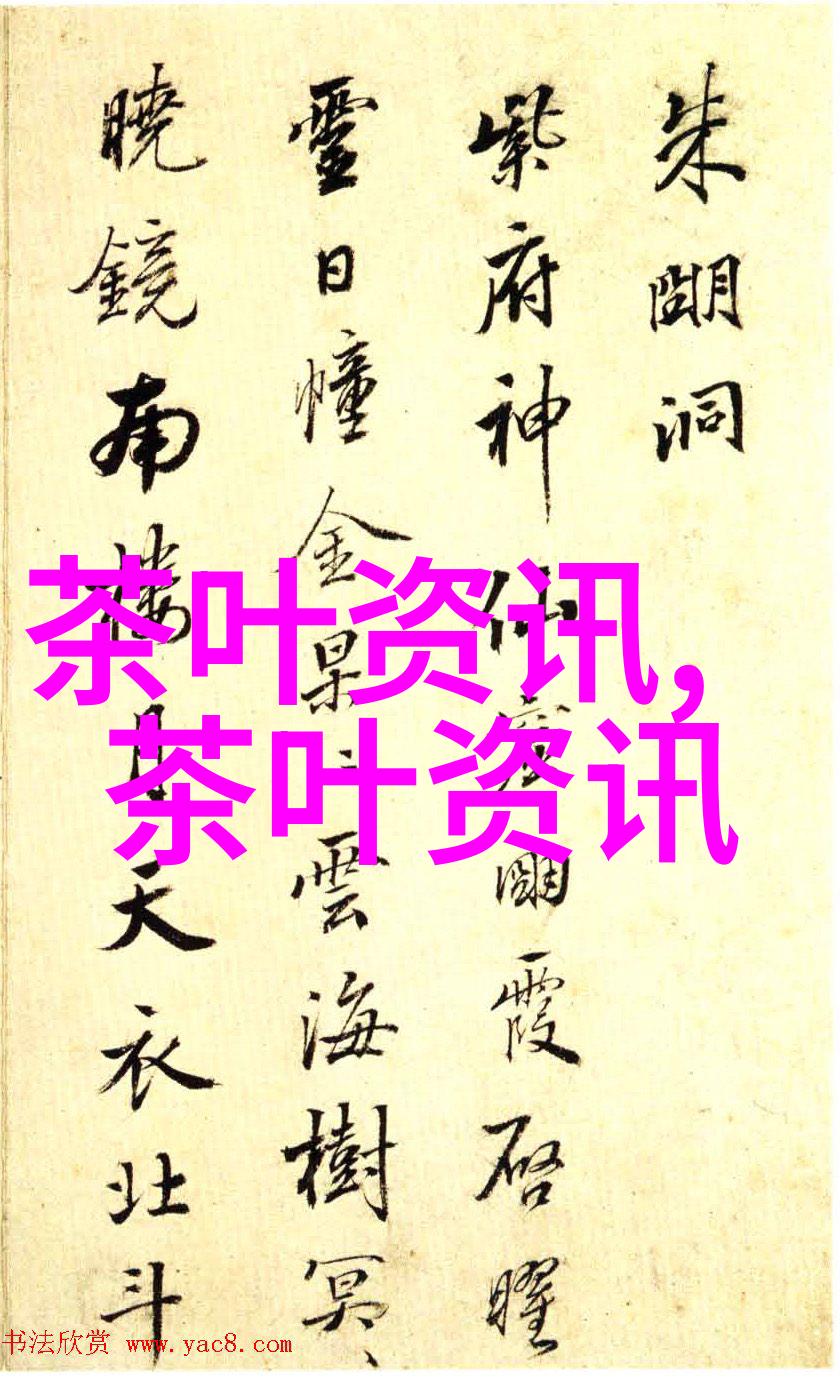 朱朙洞
紫府神仙朙霞启曜
霊日幢金杲〻雲海樹冥〻
曉鏡南樓月天衣北斗
茶叶资讯,
茶叶资讯
书法欣赏 www.yac8.com